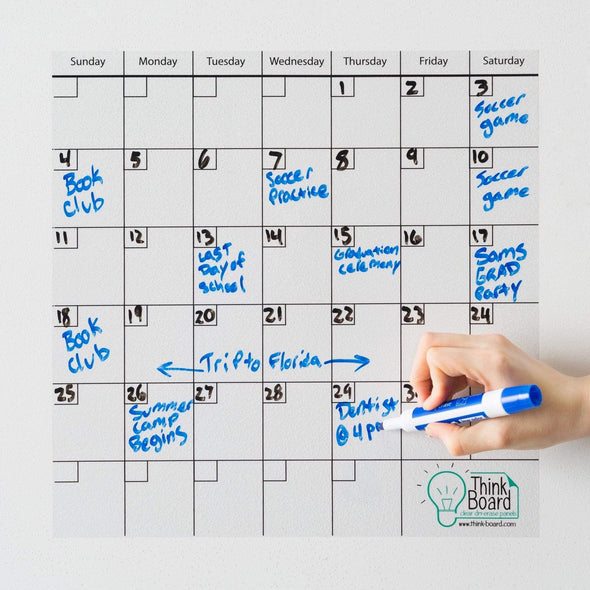 Sunday Monday Tuesday Wednesday Thursday Friday Saturday
1 2 3
Soccer
game
4 5 6 7 8 9 10
Book
Club
Soccer
Practice
Soccer
game
11 12 13 14 15 16 17
Last
Day of
School
Graduation
ceremony
Sams
GRAD
Party
18 19 20 21 22 23 24
Book
Club
Trip to Florida
25 26 27 28 29
Summer
Camp
Begins
Dentist
@ 4 p
Think
Board
clear dry-erase panels
www.think-board.com